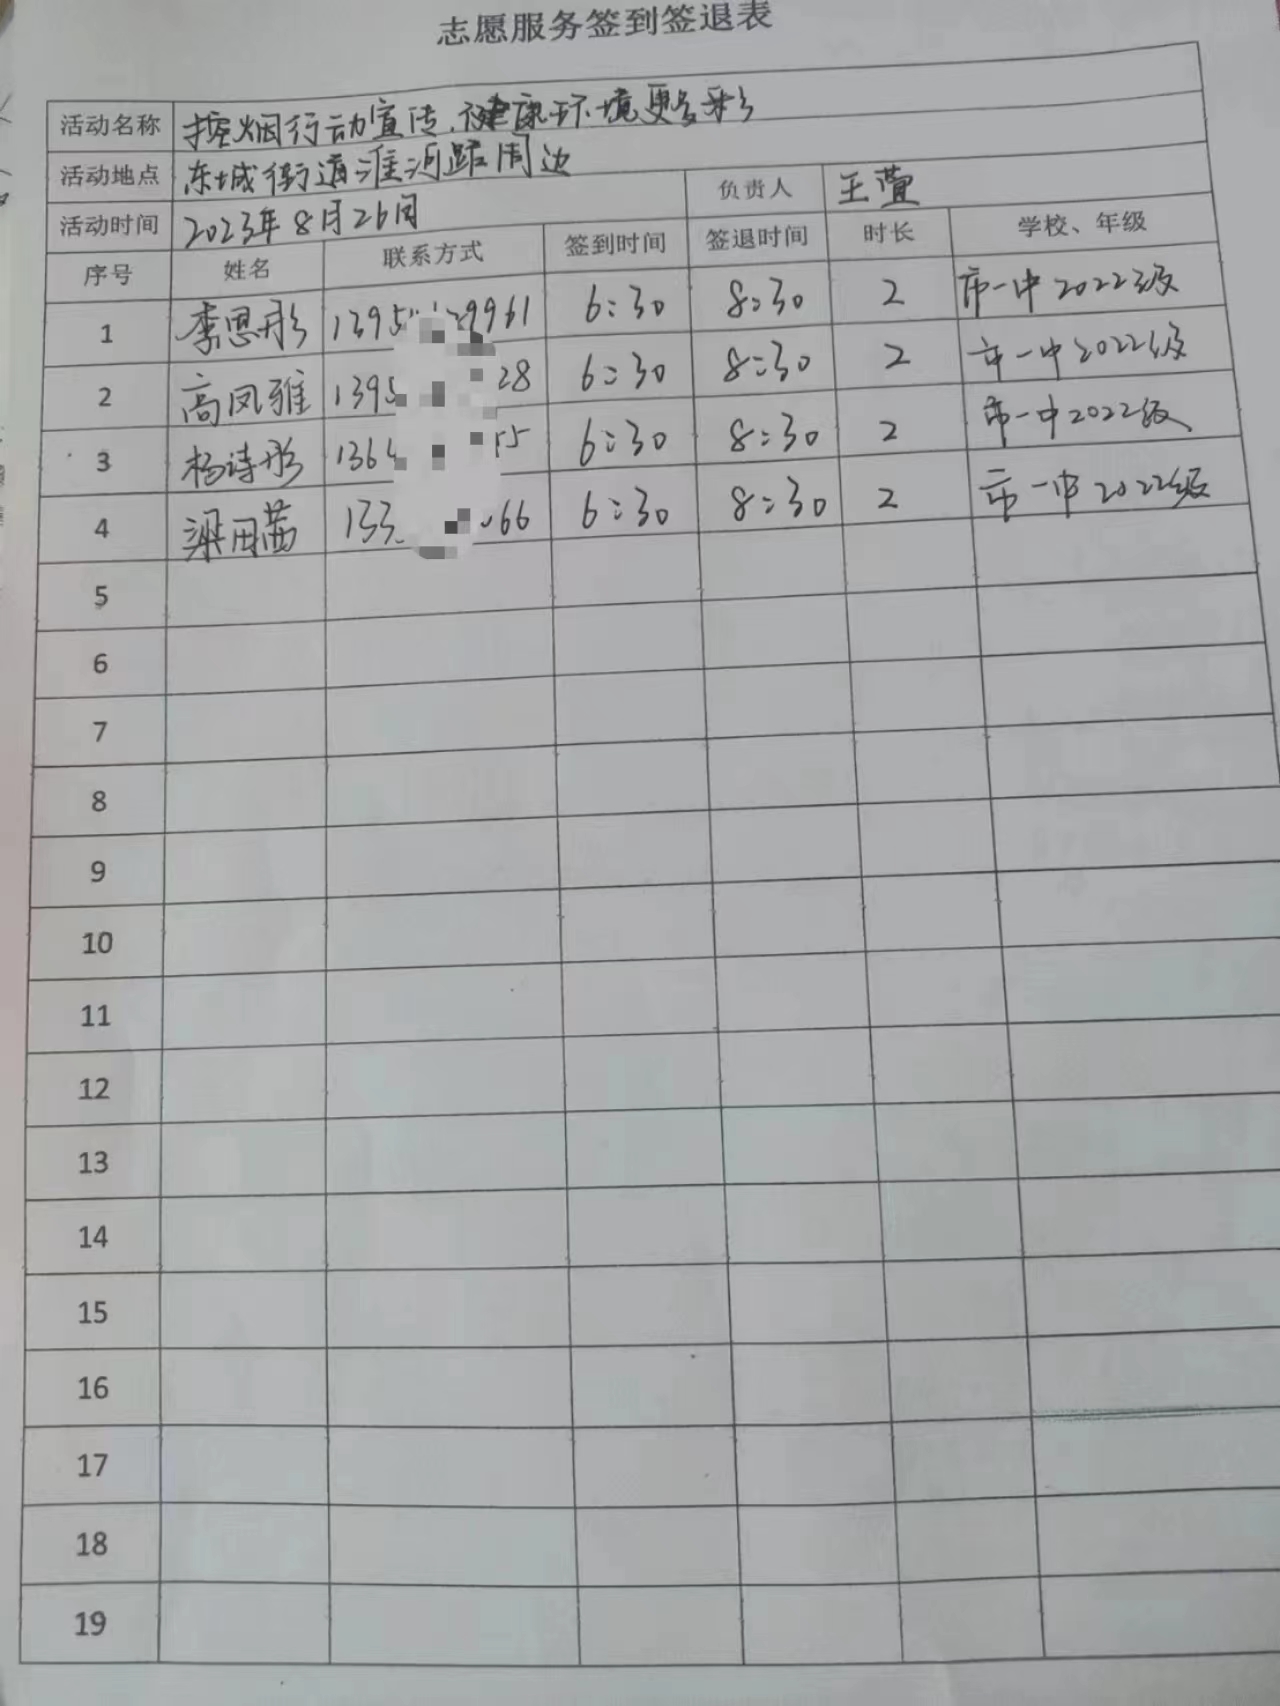 志愿服务签到签退表
活动名称 控烟行动宣传,健康环境更多彩
活动地点 东城街道淮河路周边
活动时间 2023年8月26日 负责人 王萱
序号 姓名 联系方式 签到时间 签退时间 时长 学校、年级
1 李思彤 1395 9961 6:30 8:30 2 市一中2022级
2 高凤雅 1395 28 6:30 8:30 2 市一中2022级
3 杨诗彤 136 55 6:30 8:30 2 市一中2022级
4 梁田茜 133 066 6:30 8:30 2 市一中2022级
5
6
7
8
9
10
11
12
13
14
15
16
17
18
19